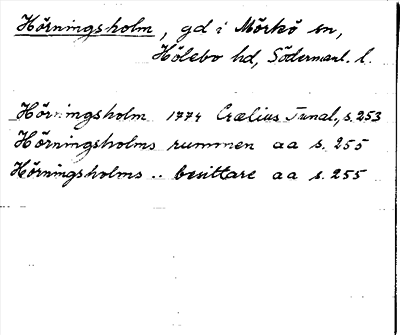 Hörningsholm, gd i Mörkö sn,
Hölebo hd, Södermanl. l.
Hörningsholm 1774 Crælius Tunal, s. 253
Hörningsholms rummen aa s. 255
Hörningsholms .. besittare aa s. 255